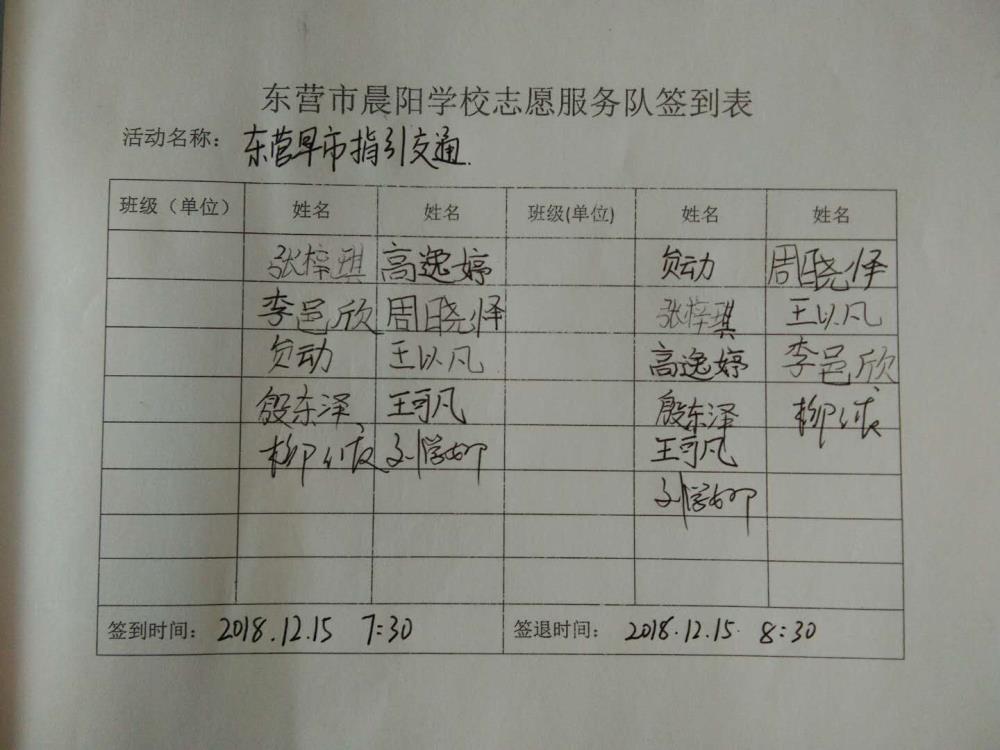 东营市晨阳学校志愿服务队签到表
活动名称： 东营早市指引交通.
班级（单位） 姓名 姓名 班级(单位) 姓名 姓名
张梓琪 高逸婷 贠动 周晓怿
李邑欣 周晓怿 张梓琪 王以凡
贠动 王以凡 高逸婷 李邑欣
殷东泽 王可凡 殷东泽 柳
柳 刘学卿 王可凡
刘学卿
签到时间： 2018.12.15 7:30 签退时间： 2018.12.15 8:30